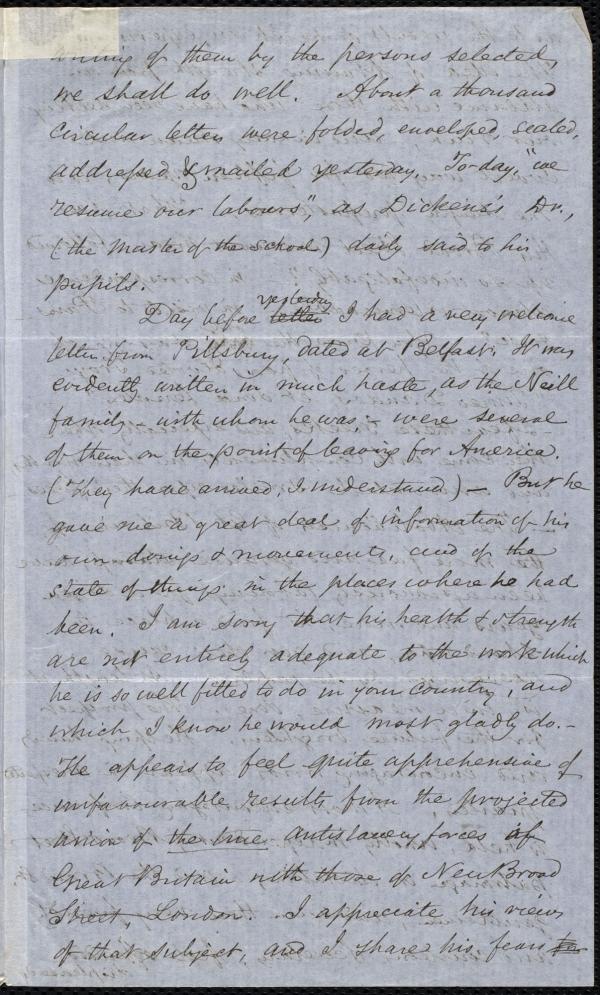 writing of them by the persons selected,
we shall do well. About a thousand
Circular letters were folded, enveloped, sealed,
addressed & mailed yesterday. To-day, "we
resume our labours", as Dickens's Dr.,
(the Master of the School) daily said to his
pupils.
yesterday
Day before letter I had a very welcome
letter from Pillsbury, dated at Belfast. It was
evidently written in much haste, as the Neill
family with whom he was, - were several
of them on the point of leaving for America.
(They have arrived, I understand) - But he
gave me a great deal of information of his
own doings & movements, and of the
state of things in the places where he had
been. I am sorry that his health & strength
are not entirely adequate to the work which
he is so well fitted to do in your country, and
which I know he would most gladly do. -
He appears to feel quite apprehensive of
unfavourable results from the projected
union of the true antislavery forces of
Great Britain with those of New Broad
Street, London. I appreciate his views
of that subject, and I share his fears